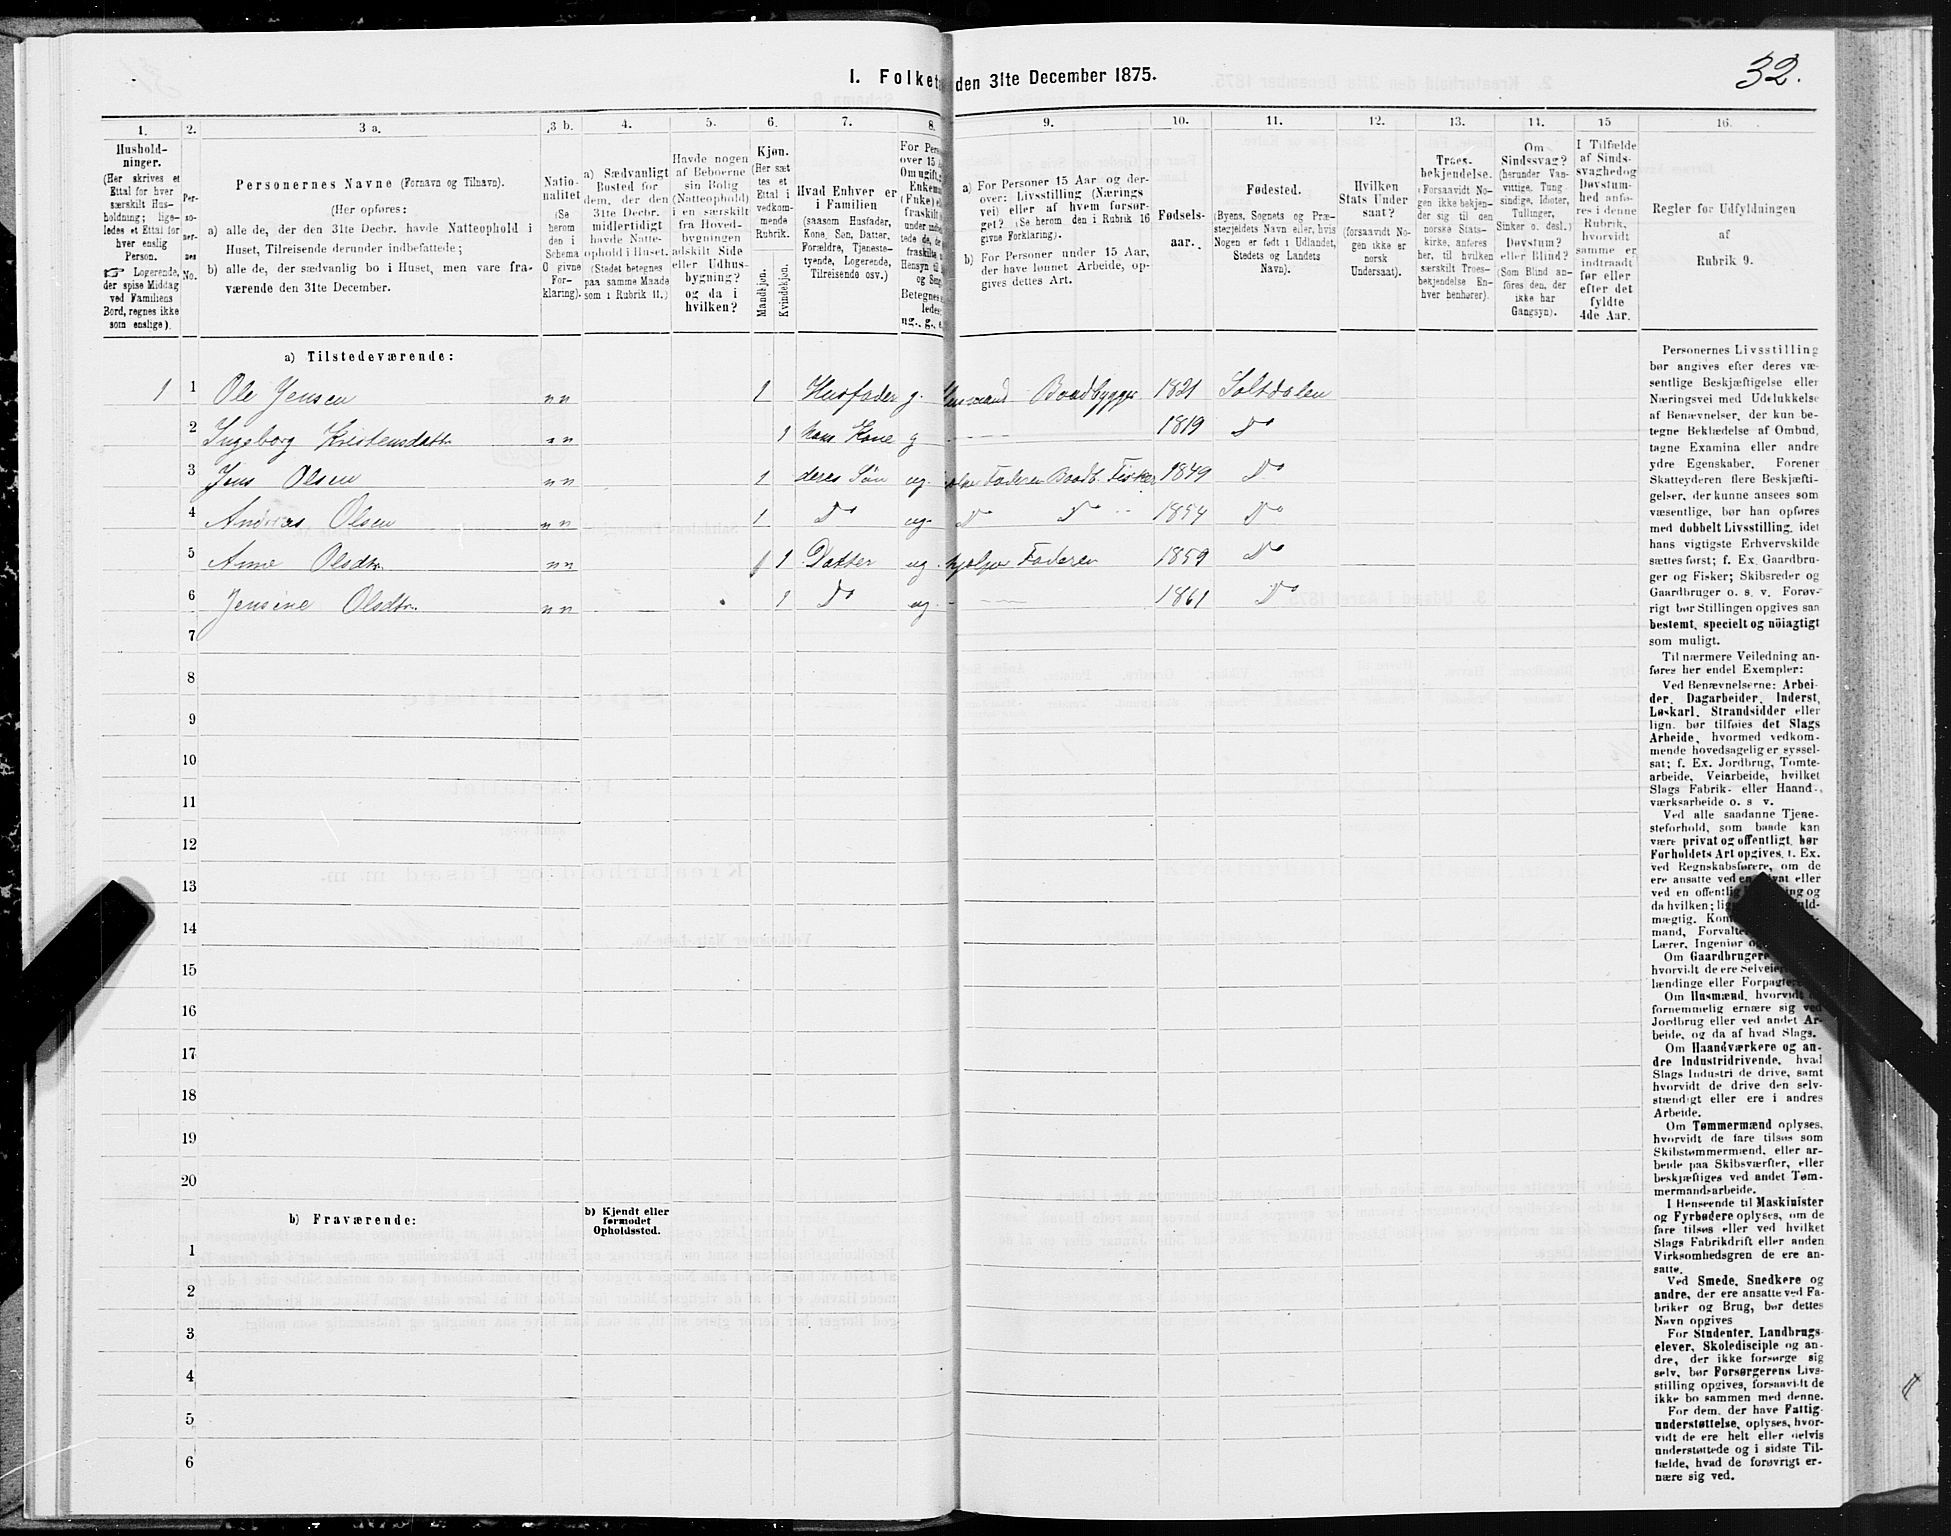 32.
I. Folketæ den 31te December 1875.
1. 2. 3 a. 3 b. 4. 5. 6. 7. 8. 9. 10. 11. 12. 13. 14. 15 16.
Hushold-
ninger.
(Her skrives et
Ettal for hver
særskilt Hus-
holdning; lige-
ledes et Ettal for
hver enslig
Person.
☞ Logerende,
der spise Middag
ved Familiens
Bord, regnes ikke
som enslige).
Per-
so-
ner-
nes
No.
Personernes Navne (Fornavn og Tilnavn).
(Her opføres:
a) alle de, der den 31te Decbr. havde Natteophold i
Huset, Tilreisende derunder indbefattede;
b) alle de, der sædvanlig bo i Huset, men vare fra-
værende den 31te December.
Natio-
nalitet
(Se
herom
den i
Schema
O givne
For-
klaring).
a) Sædvanligt
Bosted for
dem, der den
31te Decbr.
midlertidigt
havde Natte-
ophold i Huset.
(Stedet betegnes
paa samme Maade
som i Rubrik 11.)
Havde nogen
af Beboerne
sin Bolig
(Natteophold)
i en særskilt
fra Hoved-
bygningen
adskilt Side
eller Udhus-
bygning?
og da i
hvilken?
Kjøn.
(Her sæt
tes et
Ettal i
vedkom-
mende
Rubrik.
Mandkjøn.
Kvindekjøn.
Hvad Enhver er
i Familien
(saasom Husfader,
Kone, Søn, Datter,
Forældre, Tjeneste-
tyende, Logerende,
Tilreisende osv.)
For Pers
over 15 A
Om ugift,
Enkema
(Enke) e
fraskilt
Betegnes
ledes:
ug., g., e
a) For Personer 15 Aar og der-
over: Livsstilling (Nærings
vei) eller af hvem forsør-
get? (Se herom den i Rubrik 16
givne Forklaring).
b) For Personer under 15 Aar,
der have lønnet Arbeide, op-
gives dettes Art.
Fødsels-
aar.
Fødested.
(Byens, Sognets og Præ-
stegjeldets Navn eller, hvis
Nogen er født i Udlandet,
Stedets og Landets
Navn).
Hvilken
Stats Under
saat?
(forsaavidt No-
gen ikke er
norsk
Undersaat).
Troes-
bekjendelse.
(Forsaavidt No-
gen ikke bekjen-
der sig til den
norske Stats-
kirke, anføres
her, til hvilken
særskilt Troes-
bekjendelse En-
hver henhører).
Om
Sindssvag?
(herunder Van-
vittige, Tung
sindige, Idioter,
Tullinger,
Sinker o. desl.)
Døvstum?
eller Blind?
(Som Blind an-
føres den, der
ikke har
Gangsyn).
I Tilfælde
af Sinds-
svaghed og
Døvstum-
hed anfø-
res i denne
Rubrik,
hvorvidt
samme er
indtraadt
før eller
efter det
fyldte
4de Aar.
Regler for Udfyldningen
af
Rubrik 9.
a) Tilstedeværende:
1 1 Ole Jensen nn 1 Husfader g. Husmand Baadbygger 1821 Saltdalen
2 Ingeborg Kristensdattr nn 1 hans Kone g 1819 Do
3 Jens Olsen nn 1 deres Søn ug. hjælper Faderen Baadb. Fisker 1849 Do
4 Andreas Olsen nn 1 Do ug. Do Do 1854 Do
5 Anne Olsdtr nn 1 Datter ug hjelper Faderen 1859 Do
6 Jensine Olsdtr. nn 1 Do ug. 1861 Do
7
8
9
10
11
12
13
14
15
16
17
18
19
20
b) Fraværende:
b) Kjendt eller
formodet
Opholdssted.
1
2
3
4
5
6
Personernes Livsstilling
bør angives efter deres væ-
sentlige Beskjæftigelse eller
Næringsvei med Udelukkelse
af Benævnelser, der kun be-
tegne Beklædelse af Ombud,
tagne Examina eller andre
ydre Egenskaber. Forener
Skatteyderen flere Beskjæfti-
gelser, der kunne ansees som
væsentlige, bør han opføres
med dobbelt Livsstilling, idet
hans vigtigste Erhvervskilde
sættes først; f. Ex. Gaardbru-
ger og Fisker; Skibsreder og
Gaardbruger o. s. v. Forøv-
rigt bør Stillingen opgives saa
bestemt, specielt og nöiagtigt
som muligt.
Til nærmere Veiledning an-
føres her endel Exempler:
Ved Benævnelserne: Arbei-
der, Dagarbeider, Inderst,
Løskarl, Strandsidder eller
lign. bør tilføies det Slags
Arbeide, hvormed vedkom-
mende hovedsagelig er syssel-
sat; f. Ex. Jordbrug, Tomte-
arbeide, Veiarbeide, hvilket
Slags Fabrik- eller Haand-
værksarbeide o. s v.
Ved alle saadanne Tjene-
steforhold, som baade kan
være privat og offentligt, bør
Forholdets Art opgives, f. Ex.
ved Regnskabsførere, om de
ere ansatte ved en privat eller
ved en offentlig og
da hvilken;
mægtig.
mand, Forvalt
Lærer, Ingeniør
Om Gaardbrugere
hvorvidt de ere Selveiere,
lændinge eller Forpagtere.
Om Husmænd, hvorvidt
fornemmelig ernære sig ved
Jordbrug eller ved andet Ar-
beide, og da af hvad Slags.
Om Haandværkere og an-
dre Industridrivende, hvad
Slags Industri de drive, samt
hvorvidt de drive den selv-
stændigt eller ere i andres
Arbeide.
Om Tømmermænd oplyses,
hvorvidt de fare tilsøs som
Skibstømmermænd, eller ar-
beide paa Skibsværfter, eller
beskjæftiges ved andet Tøm-
mermandsarbeide.
I Henseende til Maskinister
og Fyrbødere oplyses, om de
fare tilsøs eller ved hvilket
Slags Fabrikdrift eller anden
Virksomhedsgren de ere an-
satte.
Ved Smede, Snedkere og
andre, der ere ansatte ved Fa-
briker og Brug, bør dettes
Navn opgives
For Studenter, Landbrugs-
elever, Skoledisciple og an-
dre, der ikke forsørge sig
selv, bør Forsørgerens Livs-
stilling opgives, forsaavidt de
ikke bo sammen med denne.
For dem, der have Fattig-
understøttelse, oplyses, hvor-
vidt de ere helt eller delvis
understøttede og i sidste Til-
fælde, hvad de forøvrigt er-
nære sig ved.